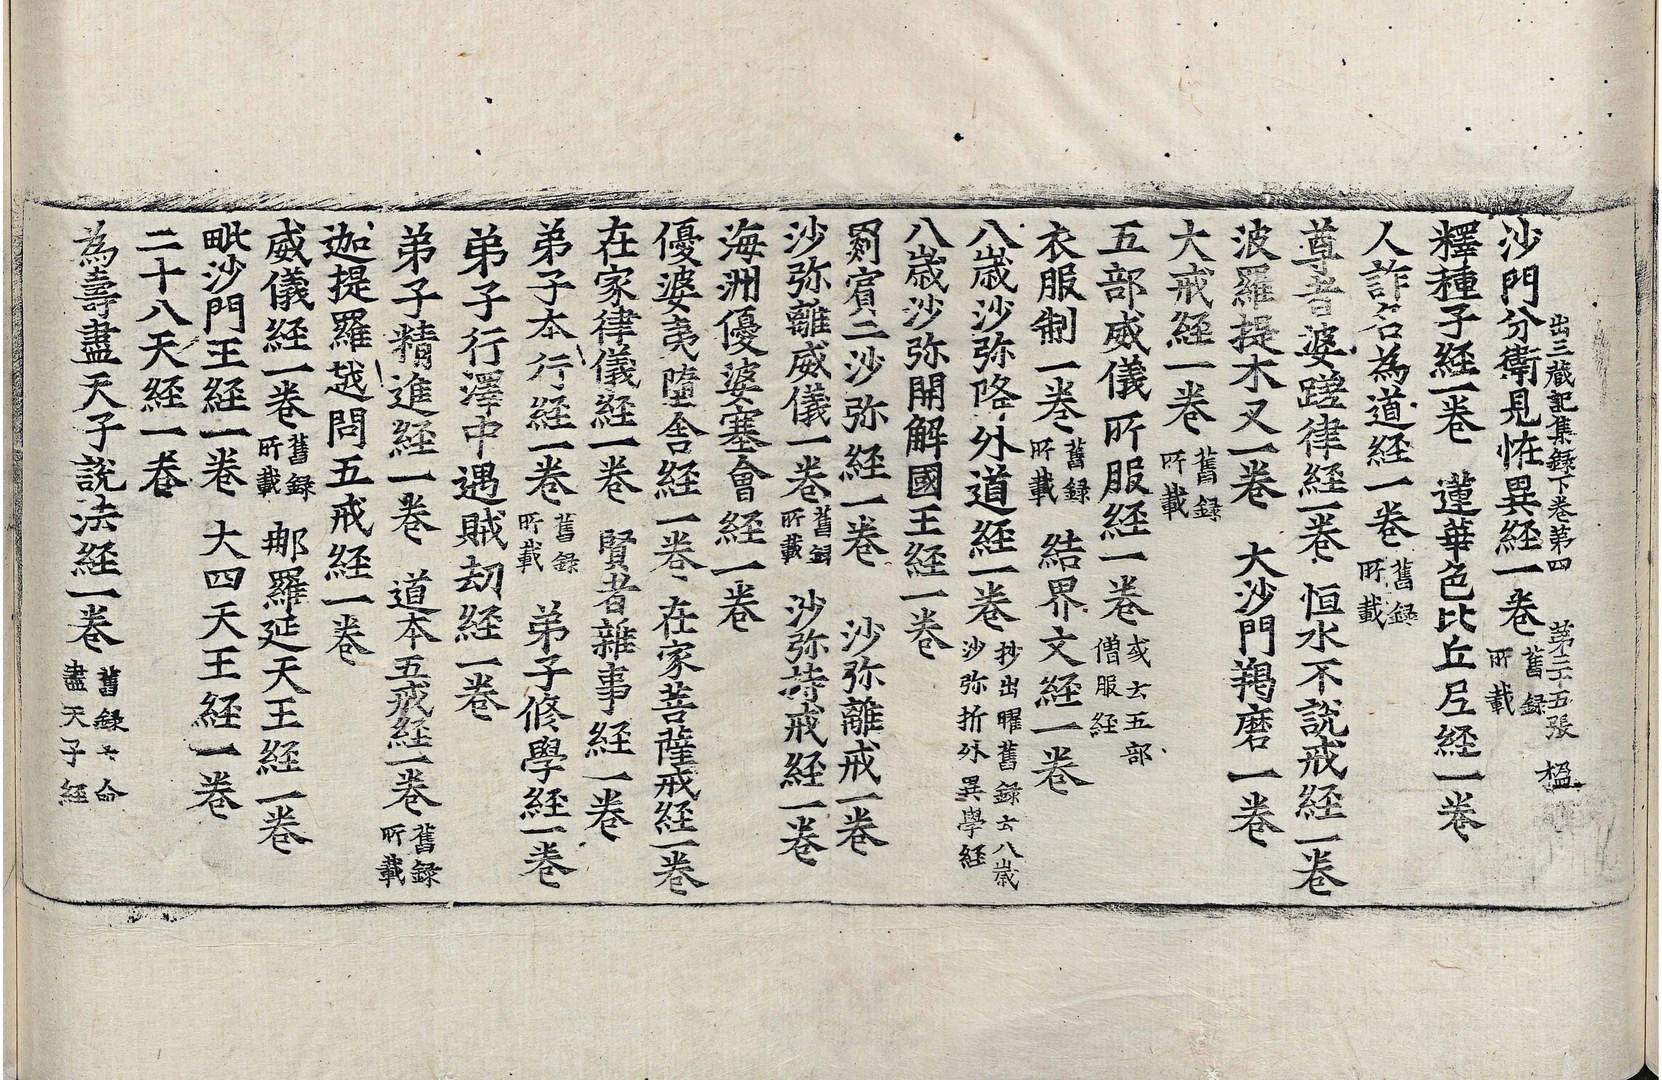 出三藏記集録下卷第四 第二十五張 楹
沙門分衛見恠異経一卷 舊録所載
釋種子経一卷 蓮華色比丘尼経一卷
人詐名為道経一卷 舊録所載
尊者婆蹉律経一卷 恒水不説戒経一卷
波羅提木叉一卷 大沙門羯磨一卷
大戒経一卷 舊録所載
五部威儀所服経一卷 或云五部僧服経
衣服制一卷 舊録所載 結界文経一卷
八歲沙弥降外道経一卷 抄出曜舊録云八歲沙弥折外異學経
八歲沙弥開解國王経一卷
罽賔二沙弥経一卷 沙弥離戒一卷
沙弥離威儀一卷 舊録所載 沙弥持戒経一卷
海洲優婆塞會経一卷
優婆夷墮舍経一卷 在家菩薩戒経一卷
在家律儀経一卷 賢者雜事経一卷
弟子本行経一卷 舊録所載 弟子修學経一卷
弟子行澤中遇賊劫経一卷
弟子精進経一卷 道本五戒経一卷 舊録所載
迦提羅越問五戒経一卷
威儀経一卷 舊録所載 那羅延天王経一卷
毗沙門王経一卷 大四天王経一卷
二十八天経一卷
為壽盡天子說法経一卷 舊録云命盡天子経